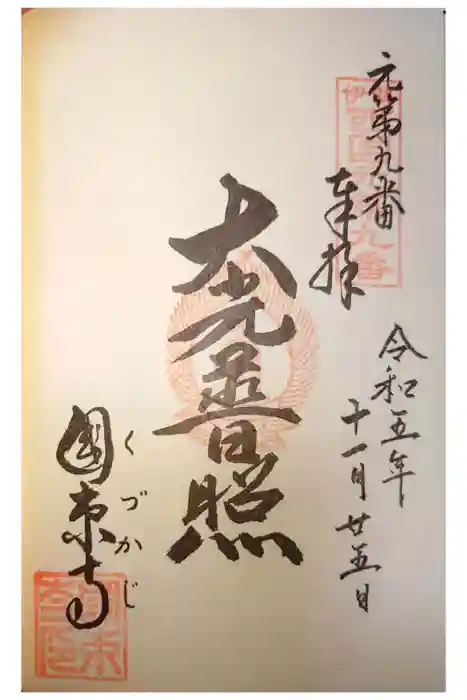 元第九番
奉拝
令和五年
十一月廿五日
大光普照
國束寺
くづかじ